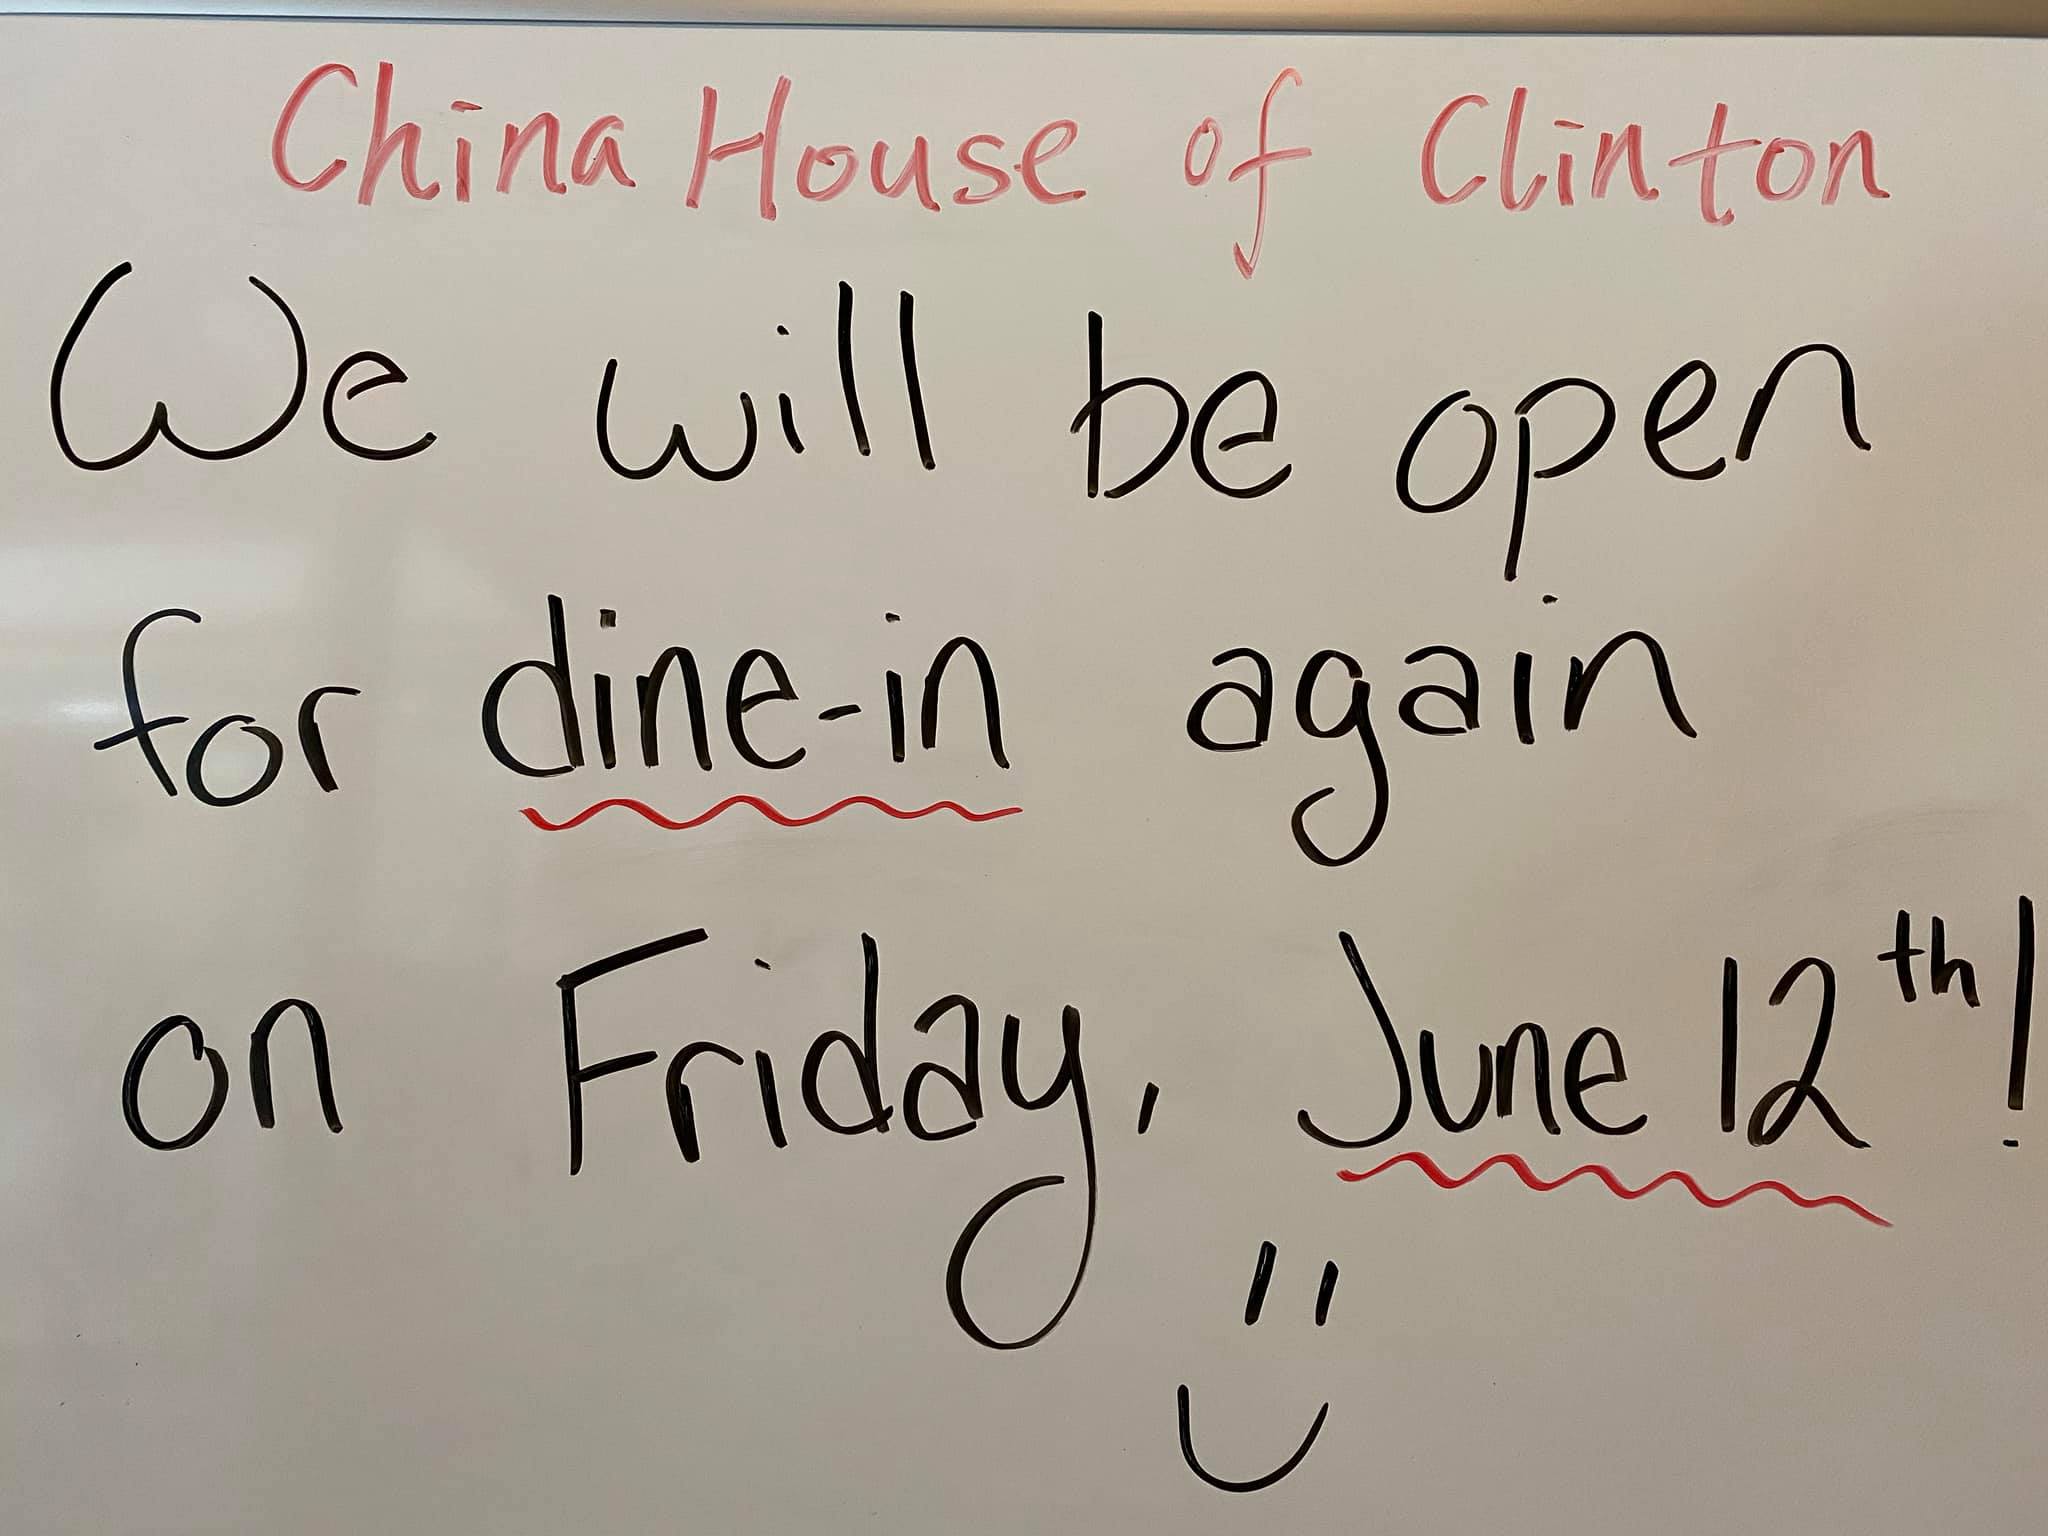 China House of Clinton
We will be open
for dine-in again
on Friday, June 12th!